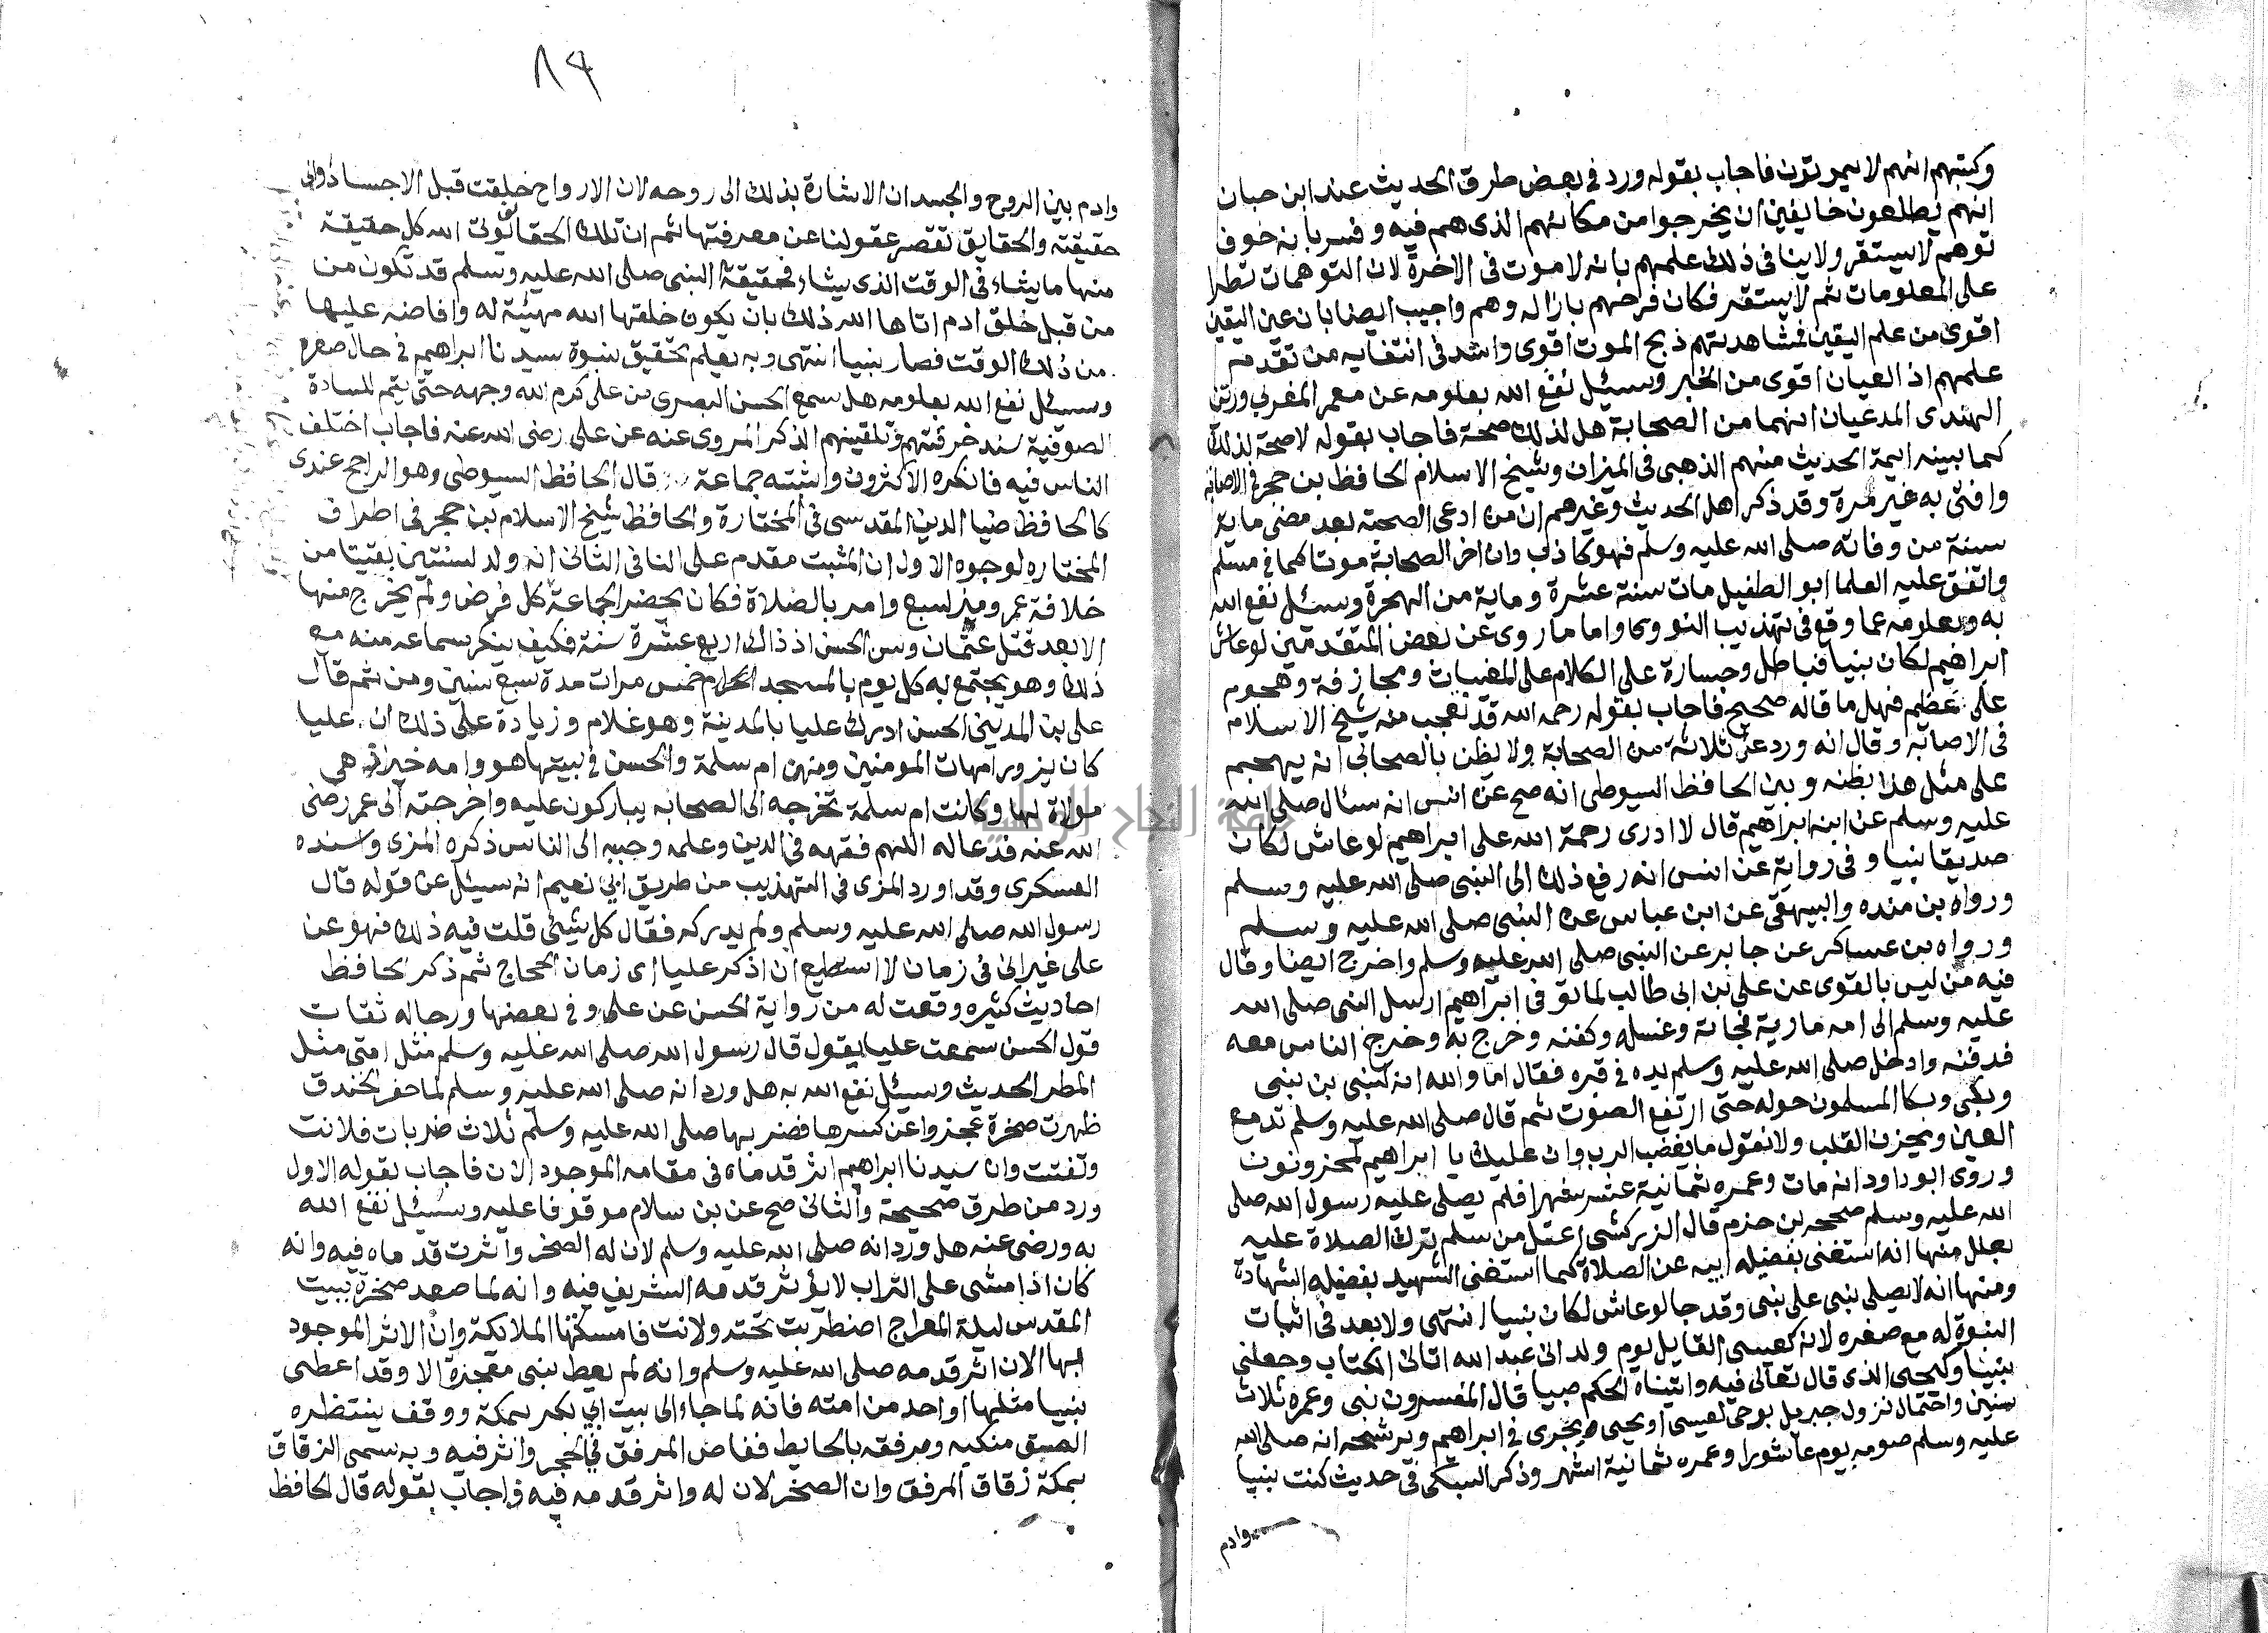 وكتبهم انهم لا يموتون فاجاب بقوله ورد في بعض طرق الحديث عند ابن حبان
انهم يطلعون خايفين ان يخرجوا من مكانهم الذي هم فيه وفسر بانه خوف
توهم لا يستقر ولا ينافي ذلك علمهم بانه لا موت في الاخرة لان التوهمات تطرا
على المعلومات ثم لا يستقر فكان فرحهم بازاله وهم واجيب ايضا بان عين اليقين
اقوى من علم اليقين فمشاهدتهم ذبح الموت اقوى واشد في انتفايه من تقدمه
علمهم اذ العيان اقوى من الخبر وسيئل نفع الله بعلومه عن معمر المغربي ورتن
الهندى المدعيان انهما من الصحابة هل لذلك صحة فاجاب بقوله لا صحة لذلك
كما بينه ايمة الحديث منهم الذهبى في الميزان وشيخ الاسلام الحافظ بن حجر في الاصابة
وافتى به غير مرة وقد ذكر اهل الحديث وغيرهم ان من ادعى الصحبة بعد مضى ماية
سنة من وفاته صلى الله عليه وسلم فهو كاذب وان اخر الصحابة موتا كما في مسلم
واتفق عليه العلما ابو الطفيل مات سنة عشرة وماية من الهجرة وسيئل نفع الله
به وبعلومه عما وقع في تهذيب النووى واما ما روى عن بعض المتقدمين لو عاش
ابراهيم لكان نبيا فباطل وجسارة على الكلام على المغيبات ومجازفة وهجوم
على عظيم فهل ما قاله صحيح فاجاب بقوله رحمه الله قد تعجب منه شيخ الاسلام
في الاصابة وقال انه ورد عن ثلاثة من الصحابة ولا يظن بالصحابي انه يهجم
على مثل هذا بظنه وبين الحافظ السيوطى انه صح عن انس انه سئال صلى الله
عليه وسلم عن ابنه ابراهيم قال لا ادرى رحمة الله على ابراهيم لو عاش لكان
صديقا نبيا وفي رواية عن انس انه رفع ذلك الى النبى صلى الله عليه وسلم
ورواه بن منده والبيهقى عن ابن عباس عن النبى صلى الله عليه وسلم
ورواه بن عساكر عن جابر عن النبى صلى الله عليه وسلم واخرج ايضا وقال
فيه من ليس بالقوى عن على بن ابى طالب لما توفى ابراهيم ارسل النبى صلى الله
عليه وسلم الى امه مارية فجاته وغسله وكفنه وخرج به وخرج الناس معه
فدفنه وادخل صلى الله عليه وسلم يده في قبره فقال اما والله انه لنبى بن نبى
وبكى وبكا المسلمون حوله حتى ارتفع الصوت ثم قال صلى الله عليه وسلم تدمع
العين ويحزن القلب ولا نقول ما يغضب الرب وان عليك يا ابراهيم لمحزونون
وروى ابو داود انه مات وعمره ثمانية عشر شهرا فلم يصلى عليه رسول الله صلى
الله عليه وسلم صححه بن حزم قال الزركشى اعتل من سلم ترك الصلاة عليه
بعلل منها انه استغنى بفضيله ابيه عن الصلاة كما استغنى الشهيد بفضيله الشهادة
ومنها انه لا يصلى نبى على نبى وقد جا لو عاش لكان نبيا انتهى ولا بعد في اثبات
النبوة له مع صغره لانه كعيسى القايل يوم ولد انى عبد الله اتانى الكتاب وجعلنى
نبيا وكيحيى الذى قال تعالى فيه واتيناه الحكم صبيا قال المفسرون نبى وعمره ثلاث
سنين واحتمال نزول جبريل بوحى لعيسى او يحيى يجرى في ابراهيم ويرشحه انه صلى الله
عليه وسلم صومه يوم عاشورا وعمره ثمانية اشهر وذكر السبكى في حديث كنت نبيا
وادم
٨٩
وادم بين الروح والجسد ان الاشارة بذلك الى روحه لان الارواح خلقت قبل الاجساد والى
حقيقته والحقايق تقصر عقولنا عن معرفتها ثم ان تلك الحقائق يوتى الله كل حقيقة
منها ما يشاء في الوقت الذى يشاء فحقيقة النبى صلى الله عليه وسلم قد تكون من
من قبل خلق ادم اتاها الله ذلك بان يكون خلقها الله مهيئة له وافاضه عليها
من ذلك الوقت فصار نبيا انتهى وبه يعلم تحقيق نبوة سيدنا ابراهيم في حال صغره
وسيئل نفع الله بعلومه هل سمع الحسن البصرى من على كرم الله وجهه حتى يتم للسادة
الصوفية سند خرقتهم وتلقينهم الذكر المروى عنه عن على رضى الله عنه فاجاب اختلف
الناس فيه فانكره الاكثرون واثبته جماعة قال الحافظ السيوطى وهو الراجح عندى
كالحافظ ضيا الدين المقدسى في المختارة والحافظ شيخ الاسلام بن حجر في اطراف
المختاره لوجوه الاول ان المثبت مقدم على النافى الثانى انه ولد لسنتين بقيتا من
خلافة عمر وميز لسبع وامر بالصلاة فكان يحضر الجماعة كل فرض ولم يخرج منها
الا بعد قتل عثمان وسن الحسن اذ ذاك اربع عشرة سنة فكيف ينكر سماعه منه مع
ذلك وهو يجتمع به كل يوم بالمسجد الحرام خمس مرات مدة سبع سنين ومن ثم قال
على بن المدينى الحسن ادرك عليا بالمدينة وهو غلام وزيادة على ذلك ان عليا
كان يزور امهات المومنين ومنهن ام سلمة والحسن في بيتها هو وامه خيرة هى
مولاة لها وكانت ام سلمة تخرجه الى الصحابه يباركون عليه واخرجته الى عمر رضى
الله عنه فدعا له اللهم فقهه في الدين وعلمه وحببه الى الناس ذكره المزى واسنده
العسكرى وقد اورد المزى في التهذيب من طريق ابي نعيم انه سيئل عن قوله قال
رسول الله صلى الله عليه وسلم ولم يدركه فقال كل شيئ قلت فيه ذلك فهو عن
على غير انى في زمان لا استطيع ان اذكر عليا اى زمان الحجاج ثم ذكر الحافظ
احاديث كثيره وقعت له من رواية الحسن عن على وفي بعضها ورجاله ثقات
قول الحسن سمعت عليا يقول قال رسول الله صلى الله عليه وسلم مثل امتى مثل
المطر الحديث وسيئل نفع الله به هل ورد انه صلى الله عليه وسلم لما حفر الخندق
ظهرت صخرة عجزوا عن كسرها فضربها صلى الله عليه وسلم ثلاث ضربات فلانت
وتفتت وان سيدنا ابراهيم اثر قدماه في مقامه الموجود الان فاجاب بقوله الاول
ورد من طرق صحيحة والثانى صح عن بن سلام موقوفا عليه وسيئل نفع الله
به ورضى عنه هل ورد انه صلى الله عليه وسلم لان له الصخر واثرت قدماه فيه وانه
كان اذا مشى على التراب لا يؤثر قدمه الشريف فيه وانه لما صعد صخرة ببيت
المقدس ليلة المعراج اضطربت تحته ولانت فامسكتها الملايكة وان الاثر الموجود
بها الان اثر قدمه صلى الله عليه وسلم وانه لم يعط نبى معجزة الا وقد اعطى
نبينا مثلها او احد من امته فانه لما جاء الى بيت ابي بكر بمكة ووقف ينتظره
الصق منكبه ومرفقه بالحايط فغاص المرفق في الحجر واثر فيه وبه سمى الزقاق
بمكة زقاق المرفق وان الصخر لان له واثر قدمه فيه فاجاب بقوله قال الحافظ
جامعة النجاح الوطنية